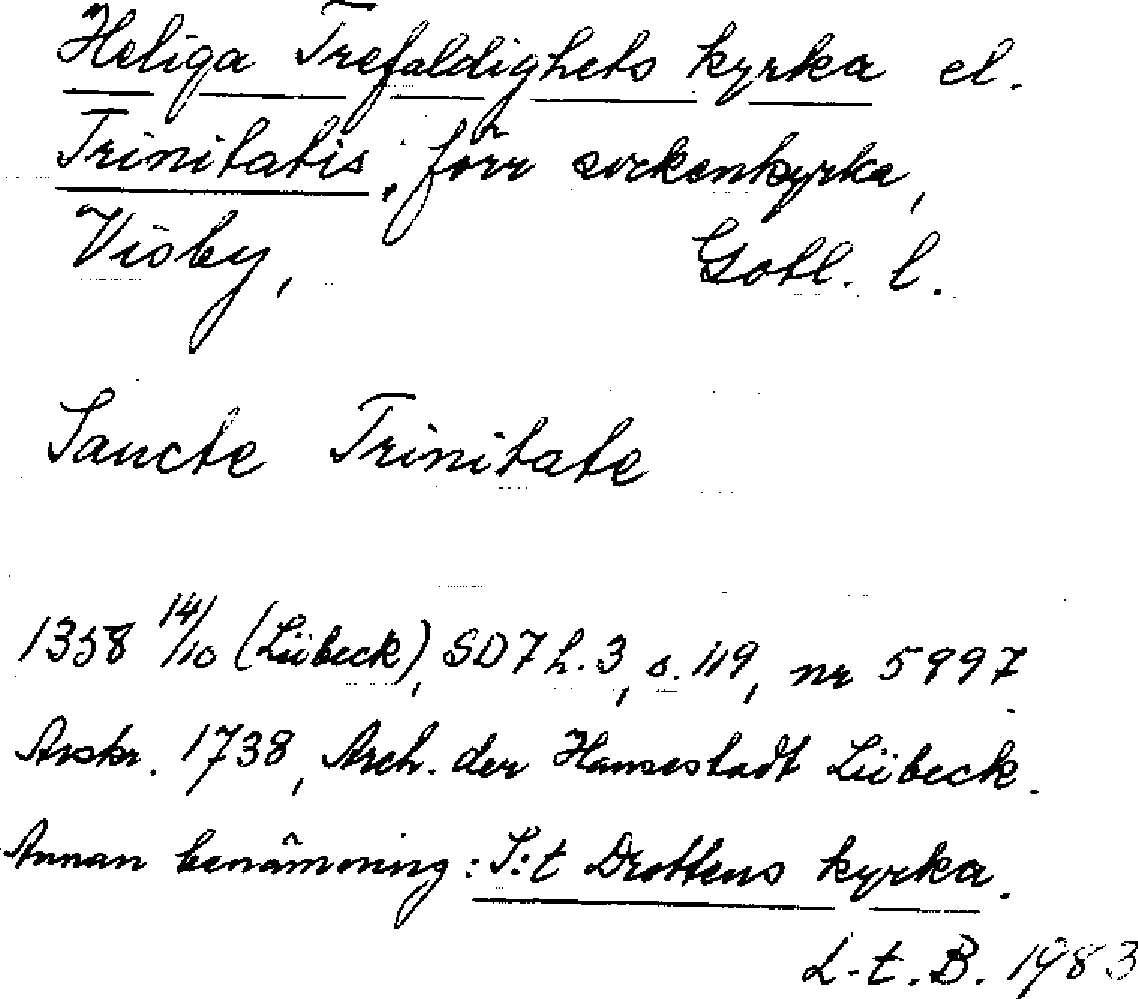 Heliga Trefaldighets kyrka el.
Trinitatis, förr sockenkyrka,
Visby, Gotl. l.
Sancte Trinitate
1358 14/10 (Lübeck), SD 7 h. 3, s. 119, nr 5997
Avskr. 1738, Arch. der Hansestadt Lübeck.
Annan benämning: S:t Drottens kyrka.
L-t. B. 1983